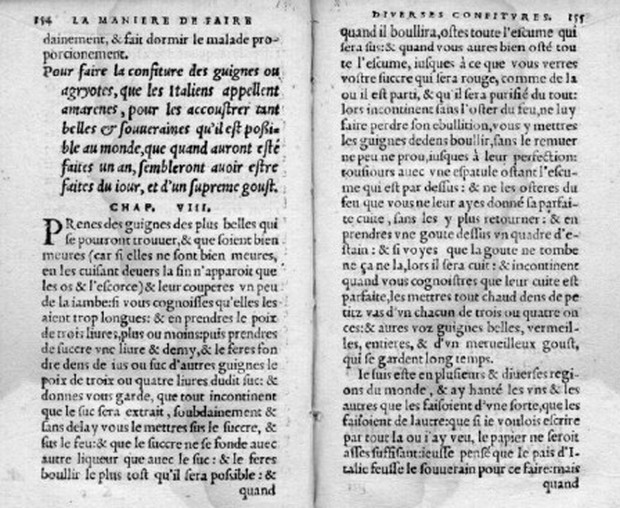 154 LA MANIERE DE FAIRE
dainement, & fait dormir le malade pro-
porcionement.
Pour faire la confiture des guignes ou
agryotes, que les Italiens appellent
amarenes, pour les accoustrer tant
belles & souueraines qu'il est possi-
ble au monde, que quand auront esté
faites un an, sembleront auoir estre
faites du iour, et d'un supreme goust.
CHAP. VIII.
PRenes des guignes des plus belles qui
se pourront trouuer, & que soient bien
meures (car si elles ne sont bien meures,
en les cuisant deuers la fin n'apparoit que
les os & l'escorce) & leur couperes vn peu
de la iambe: si vous cognoisses qu'elles les
aient trop longues: & en prendres le poix
de trois liures, plus ou moins: puis prendres
de succre vne liure & demy, & le feres fon
dre dens de ius ou suc d'autres guignes le
poix de troix ou quatre liures dudit suc: &
donnes vous garde, que tout incontinent
que le suc sera extrait, soubdainement &
sans delay vous le mettres sus le succre, &
sus le feu: & que le succre ne se fonde auec
autre liqueur que auec le suc: & le feres
boullir le plus tost qu'il sera possible: &
quand
DIVERSES CONFITVRES. 155
quand il boullira, ostes toute l'escume qui
sera sus: & quand vous aures bien osté tou
te l'escume, iusques à ce que vous verres
vostre succre qui sera rouge, comme de la
ou il est parti, & qu'il sera purifié du tout:
lors incontinent sans l'oster du feu, ne luy
faire perdre son ebullition, vous y mettres
les guignes dedens boullir, sans le remuer
ne peu ne prou, iusques à leur perfection:
tousiours auec vne espatule ostant l'escu-
me qui est par dessus: & ne les osteres du
feu que vous ne leur ayes donné sa parfai-
te cuite, sans les y plus retourner: & en
prendres vne goute dessus vn quadre d'e-
stain: & si voyes que la goute ne tombe
ne ça ne la, lors il sera cuit: & incontinent
quand vous cognoistres que leur cuite est
parfaite, les mettres tout chaud dens de pe
titz vas d'vn chacun de trois ou quatre on
ces: & aures voz guignes belles, vermeil-
les, entieres, & d'vn merueilleux goust,
qui se gardent long temps.
Ie suis esté en plusieurs & diuerses regi-
ons du monde, & ay hanté les vns & les
autres que les faisoient d'vne sorte, que les
faisoient de lautre: que si ie voulois escrire
par tout la ou i'ay veu, le papier ne seroit
asses suffisant: ieusse pensé que le païs d'I-
talie feusse le souuerain pour ce faire: mais
quand